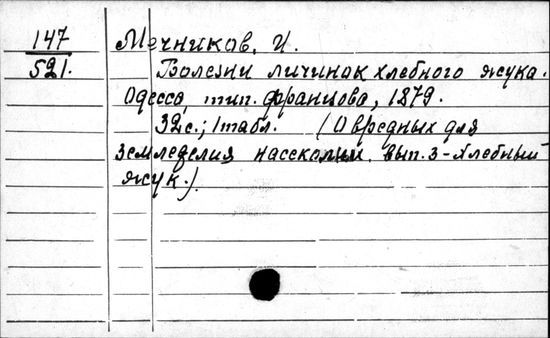 147
521.
Мечников, И.
Болезни личинок хлебного жука.
Одесса, тип. Францова, 1879.
32с.; 1табл. (О вредных для
земледелия насекомых. вып. 3 - Хлебный
жук.)